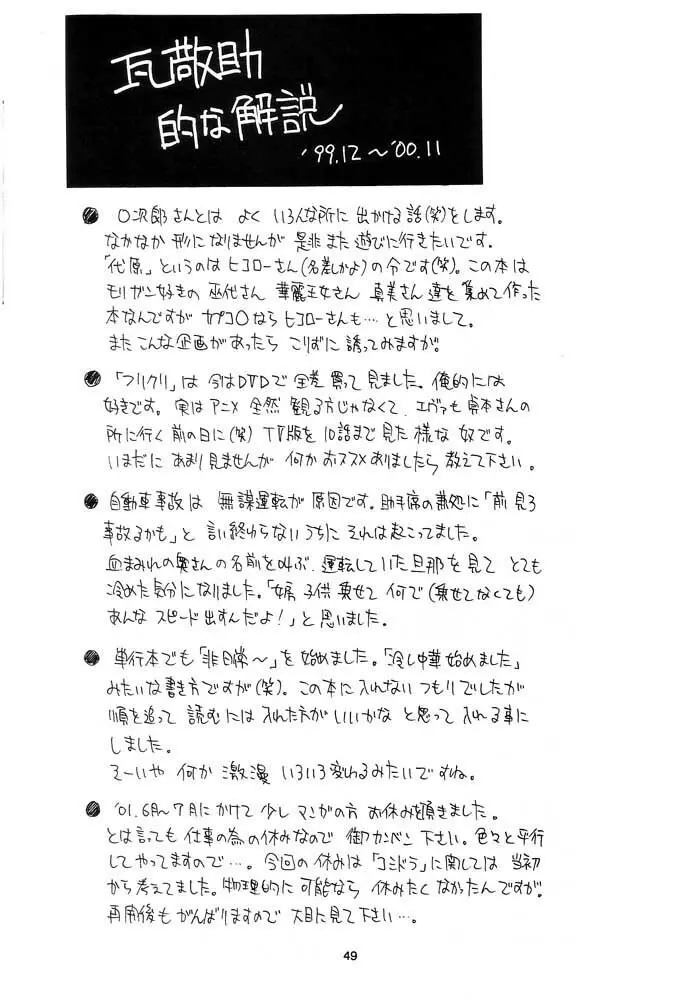 瓦敬助
的な解説
'99.12～'00.11
● ○次郎さんとは よく いろんな所に 出かける話(笑)をします。
なかなか 形になりませんが 是非 また 遊びに行きたいです。
「代原」というのは ヒコローさん(名差しかよ)の今です(笑)。この本は
モリガン好きの 巫代さん 華麗王女さん 真美さん 達を 集めて 作った
本なんですが カプコ○なら ヒコローさんも…と思いまして。
また こんな 企画が あったら こりずに 誘ってみますが。
● 「フリクリ」は 今はDVDで 全差 買って 見ました。俺的には
好きです。実は アニメ 全然 観る方じゃなくて、エヴァも 貞本さんの
所に行く 前の日に(笑) TV版を 10話まで 見た 様な 奴です。
いまだに あまり 見ませんが 何か おススメ ありましたら 教えて下さい。
● 自動車事故は 無謀運転が 原因です。助手席の 義処に「前 見ろ
事故るかも」と 言い終わらない うちに それは 起こってました。
血まみれの奥さんの名前を叫ぶ、運転していた旦那を見て とても
冷めた気分になりました。「嫁 子供 乗せて 何で(乗せてなくても)
あんな スピード 出すんだよ!」と 思いました。
● 単行本でも「非日常～」を 始めました。「冷し中華 始めました」
みたいな書き方ですが(笑)。この本に 入れない つもりでしたが
順を追って 読むには 入れた方が いいかな と思って 入れる事に
しました。
そーいや 何か 激漫 いろいろ変わるみたいですね。
● '01.6月～7月にかけて 少し マンガの方 お休みを頂きました。
とは言っても 仕事の為の休みなので 御カンベン 下さい。色々と平行
してやってますので…。今回の 休みは「コミドラ」に関しては 当初
から考えてました。物理的に 可能なら 休みたく なかったんですが。
再開後も がんばりますので 大目に見て下さい…。
49